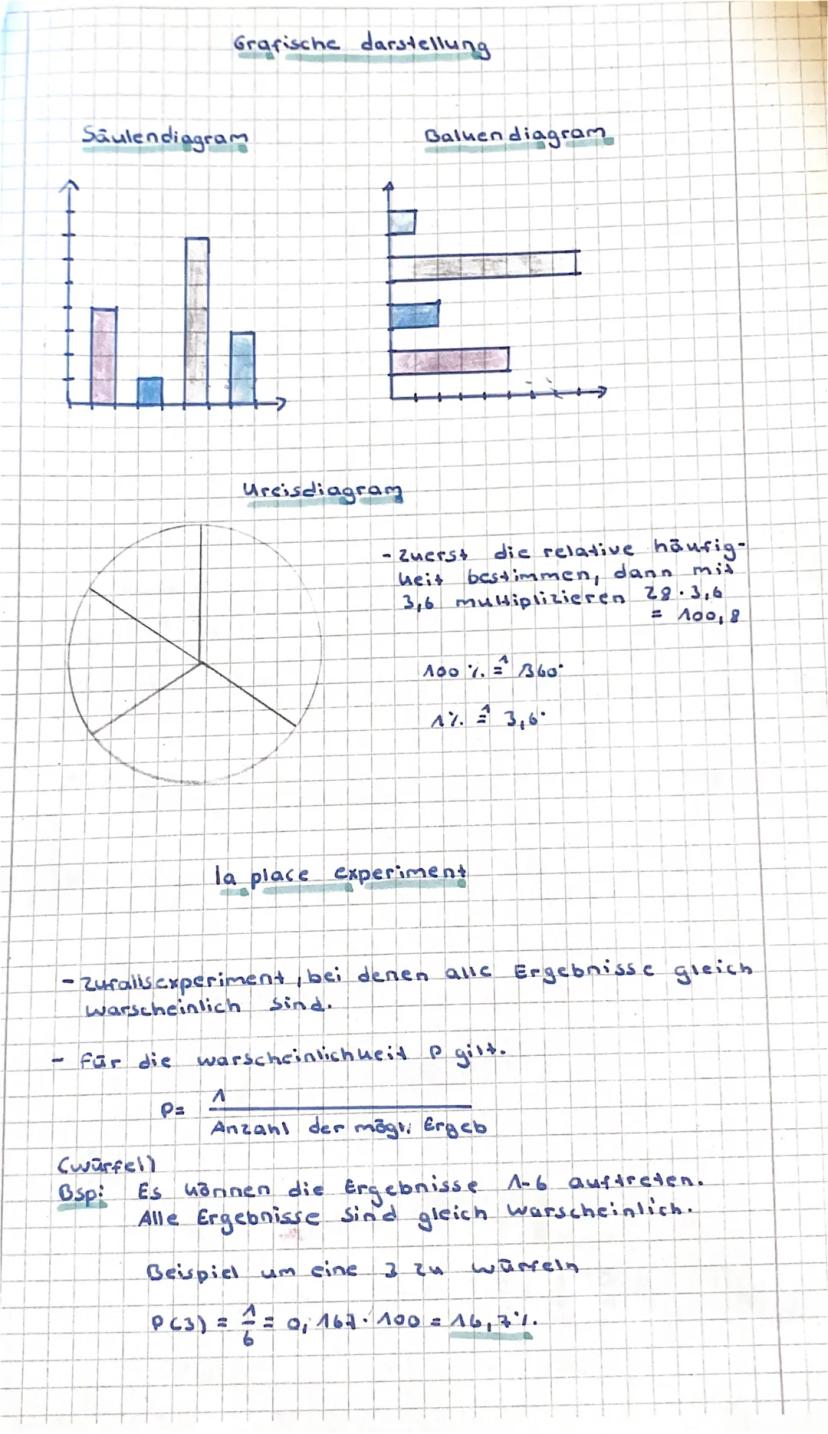 Grafische darstellung
Säulendiagram
Balkendiagram
Kreisdiagram
- Zuerst die relative häufig-
keit bestimmen, dann mit
3,6 multiplizieren 28 · 3,6
= 100,8
100 % ≙ 360°
1% ≙ 3,6°
la place experiment
- Zufallsexperiment, bei denen alle Ergebnisse gleich
warscheinlich sind.
- für die warscheinlichkeit P gilt.
P= 1
Anzahl der mögl. Ergeb
(würfel)
Bsp: Es können die Ergebnisse 1-6 auftreten.
Alle Ergebnisse sind gleich warscheinlich.
Beispiel um eine 3 zu würfeln
P(3) = 1/6 = 0,167 · 100 = 16,7%.